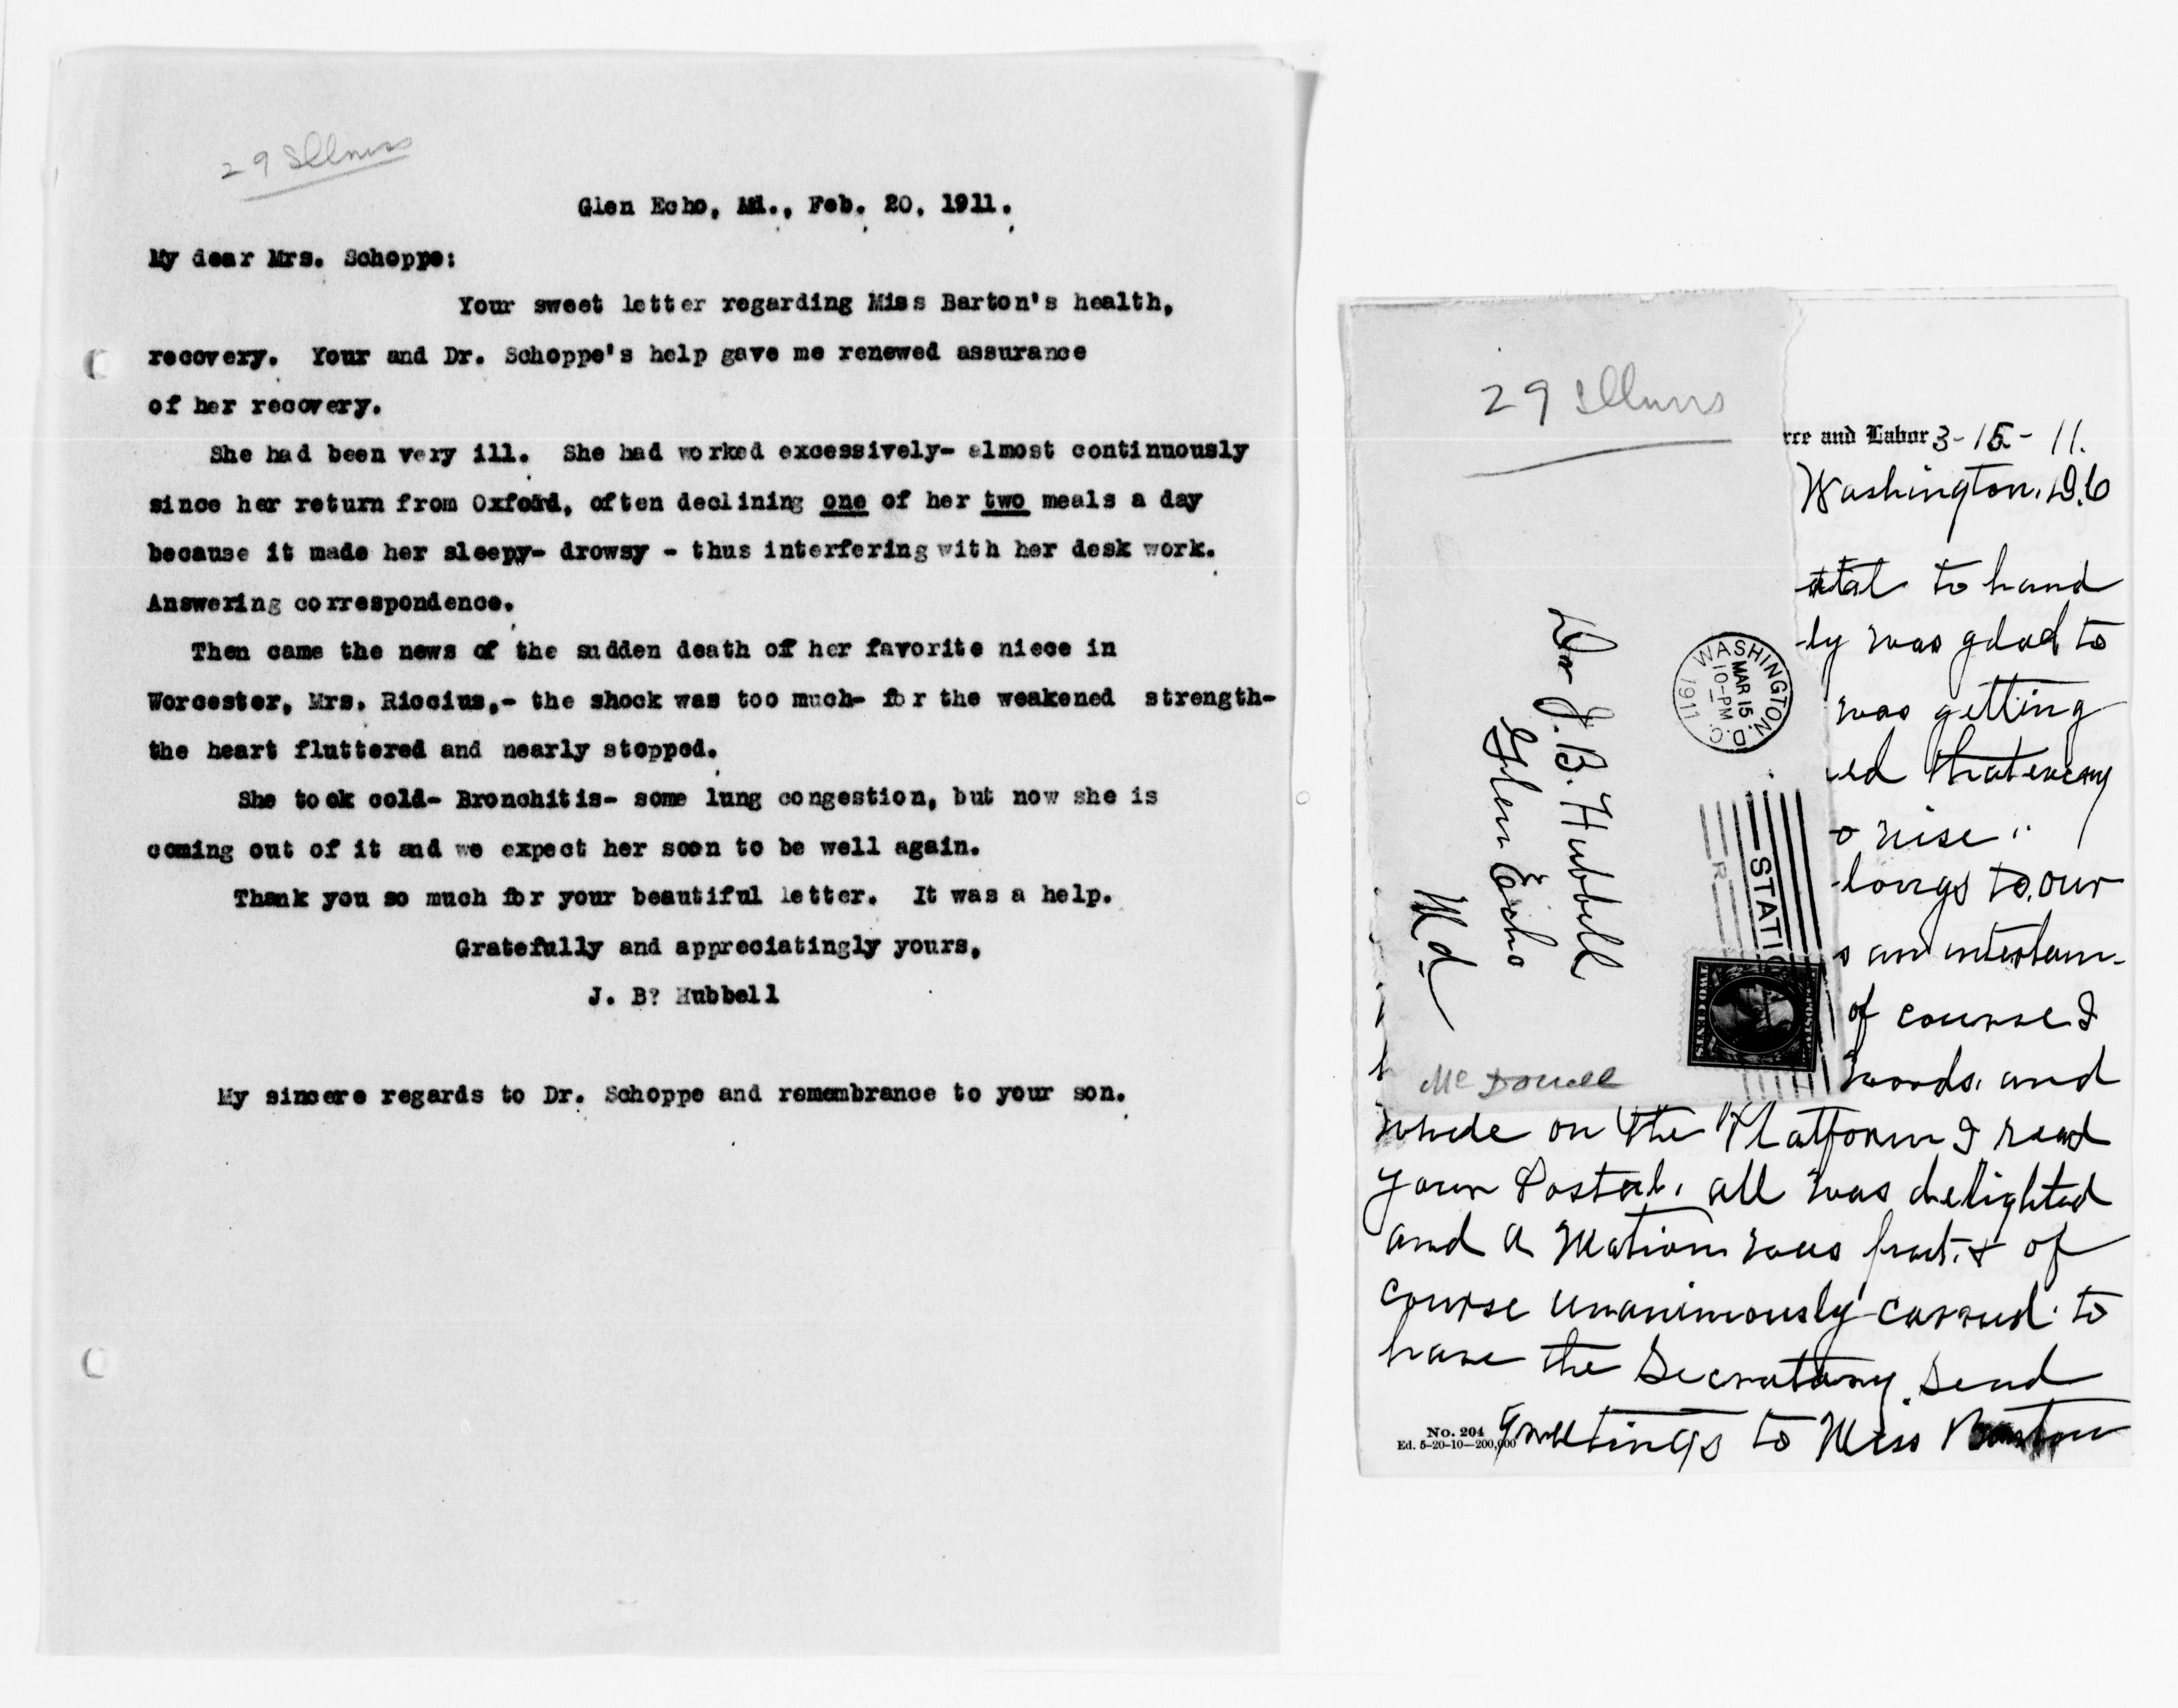 29 Illness
Glen Echo, Md., Feb. 20, 1911.
My dear Mrs. Schoppe:
Your sweet letter regarding Miss Barton's health,
recovery. Your and Dr. Schoppe's help gave me renewed assurance
of her recovery.
She had been very ill. She had worked excessively- almost continuously
since her return from Oxford, often declining one of her two meals a day
because it made her sleepy- drowsy - thus interfering with her desk work.
Answering correspondence.
Then came the news of the sudden death of her favorite niece in
Worcester, Mrs. Riccius,- the shock was too much- for the weakened strength-
the heart fluttered and nearly stopped.
She took cold- Bronchitis- some lung congestion, but now she is
coming out of it and we expect her soon to be well again.
Thank you so much for your beautiful letter. It was a help.
Gratefully and appreciatingly yours,
J. B? Hubbell
My sincere regards to Dr. Schoppe and remembrance to your son.
29 Illness
Dr J. B. Hubbell
Glen Echo
Md
WASHINGTON, D.C.
MAR 15
10-PM
1911
STATI
R
TWO CENTS
McDowell
rce and Labor 3-15-11.
Washington, D.C
stal to hand
ly was glad to
was getting
ed that
o rise"
longs to our
s an
of course I
words, and
while on the Platform I read
your Postal, all was delighted
and a Motion was & of
course unanimously carried to
have the Secretary send
greetings to Miss Barton
No. 204
Ed. 5-20-10-200,000